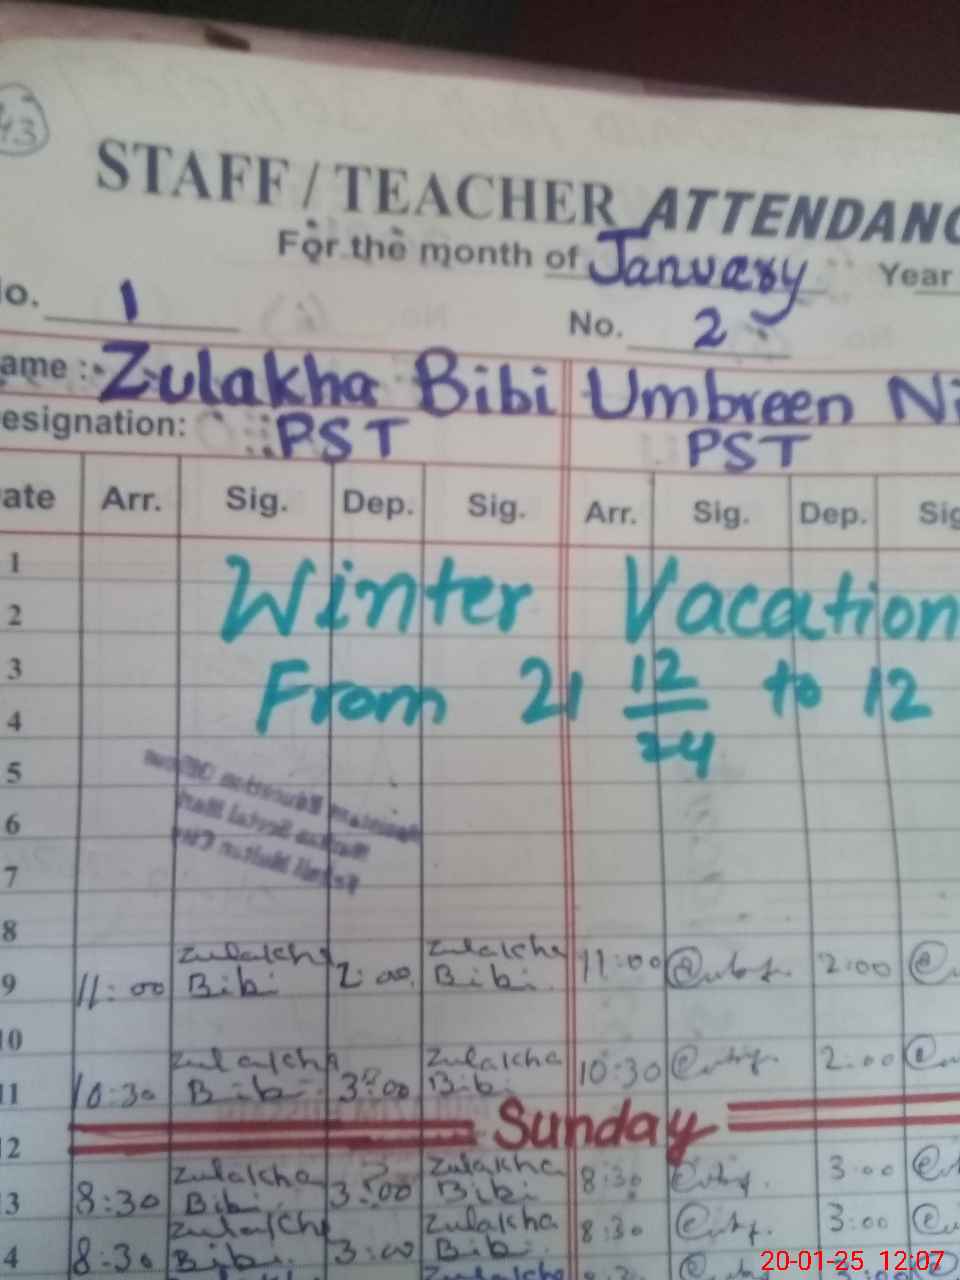 43
STAFF / TEACHER ATTENDANC
For the month of January Year
No. 1 No. 2
ame : Zulakha Bibi Umbreen Ni
esignation: PST PST
ate Arr. Sig. Dep. Sig. Arr. Sig. Dep. Sig
1
2 Winter Vacation
3
4 From 21 12/24 to 12
5
6
7
8
9 11:00 Zulakha Bibi 2:00 Zulakha Bibi 11:00 2:00
10
11 10:30 Zulakha Bibi 3:00 Zulakha Bibi 10:30 2:00
12 Sunday
13 8:30 Zulakha Bibi 3:00 Zulakha Bibi 8:30 3:00
4 8:30 Zulakha Bibi 3:00 Zulakha Bibi 8:30 3:00
20-01-25 12:07